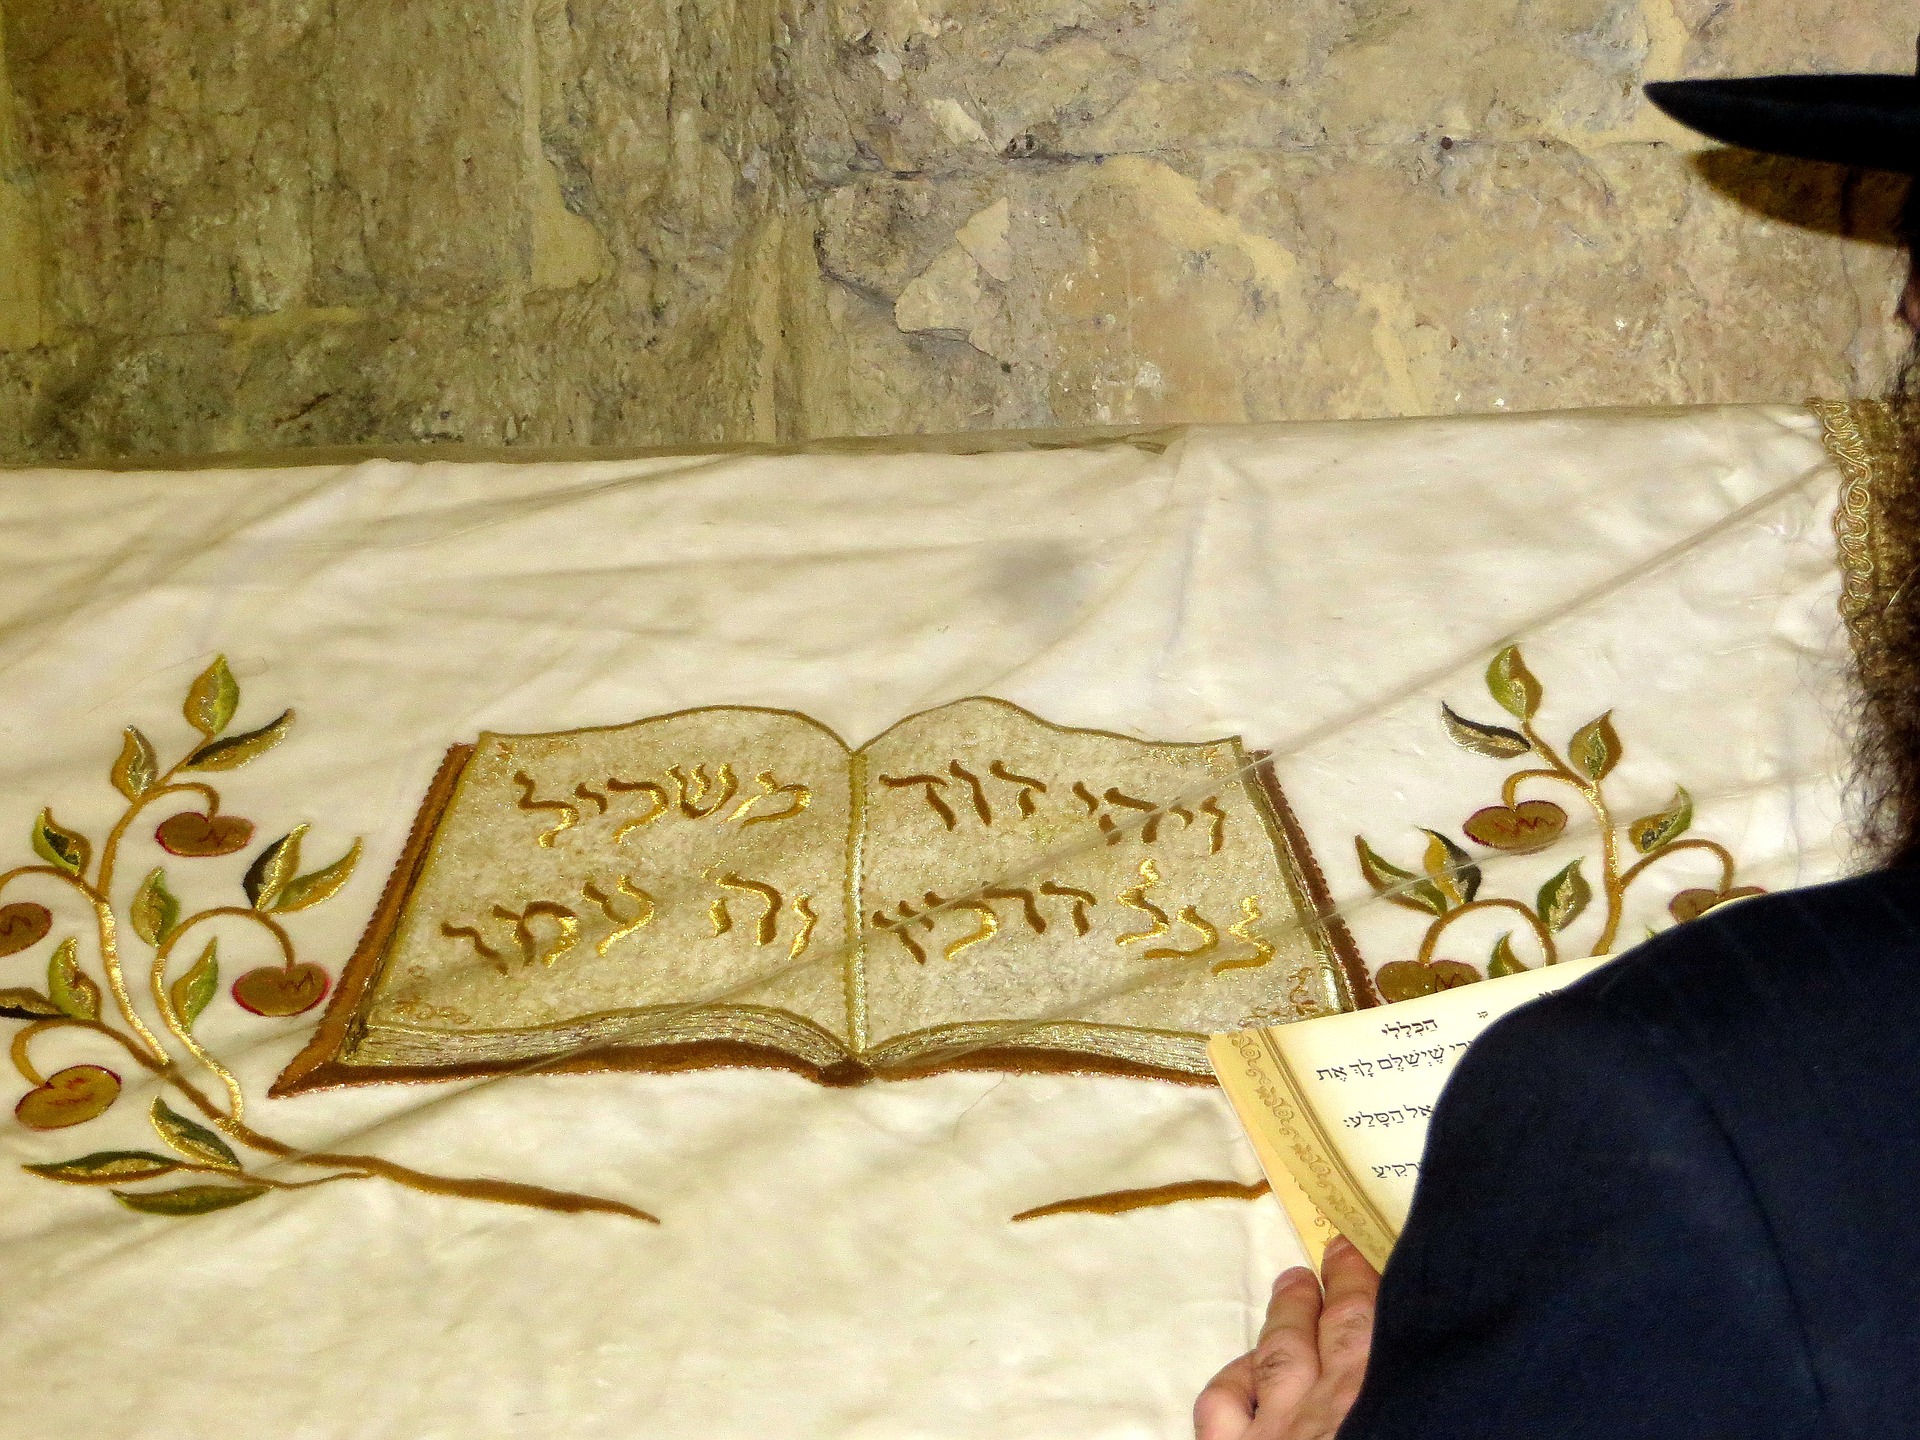 ויהי דוד
לכל דרכיו
משכיל
וה' עמו
הכללי
שֶׁיְשַׁלֵּם לָךְ אֶת
אל הַסָּלַע: